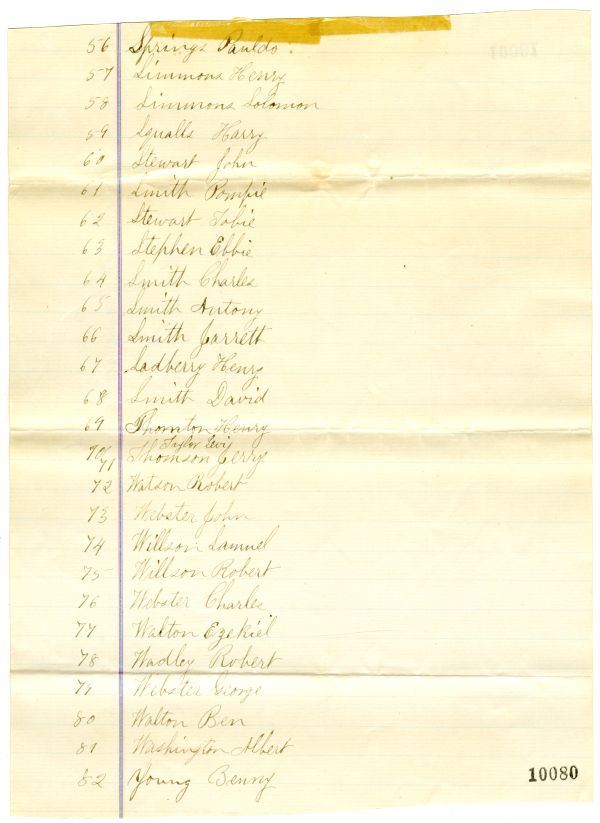 56 Springs Pauldo.
57 Simmons Henry
58 Simmons Solomon
59 Squalls Harry
60 Stewart John
61 Smith Pompie
62 Stewart Tobie
63 Stephen Ebbie
64 Smith Charles
65 Smith Antony
66 Smith Jarrett
67 Sadberry Henry
68 Smith David
69 Thomton Henry
70 Taylor Levi
71 Thomson Jerry
72 Watson Robert
73 Webster John
74 Willson Samuel
75 Willson Robert
76 Webster Charles
77 Walton Ezekiel
78 Wadley Robert
79 Webster George
80 Walton Ben
81 Washington Albert
82 Young Benny
10080